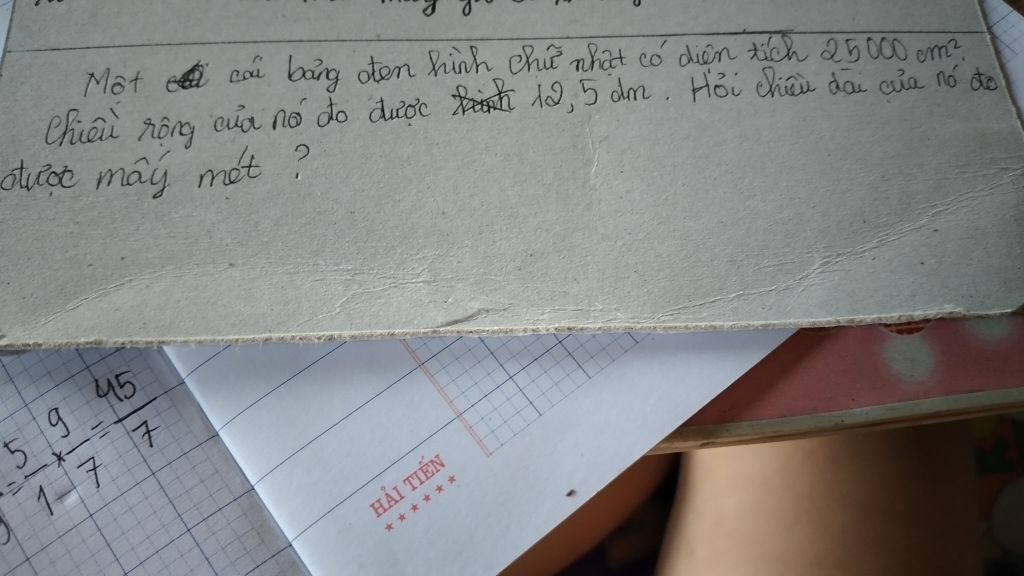 Một cái bảng đen hình chữ nhật có diện tích 25000 cm².
Chiều rộng của nó đo được 12,5 dm. Hỏi chiều dài của nó đo
được mấy mét ?
= 5/1 × 9/7 = 45/7
HẢI TIẾN